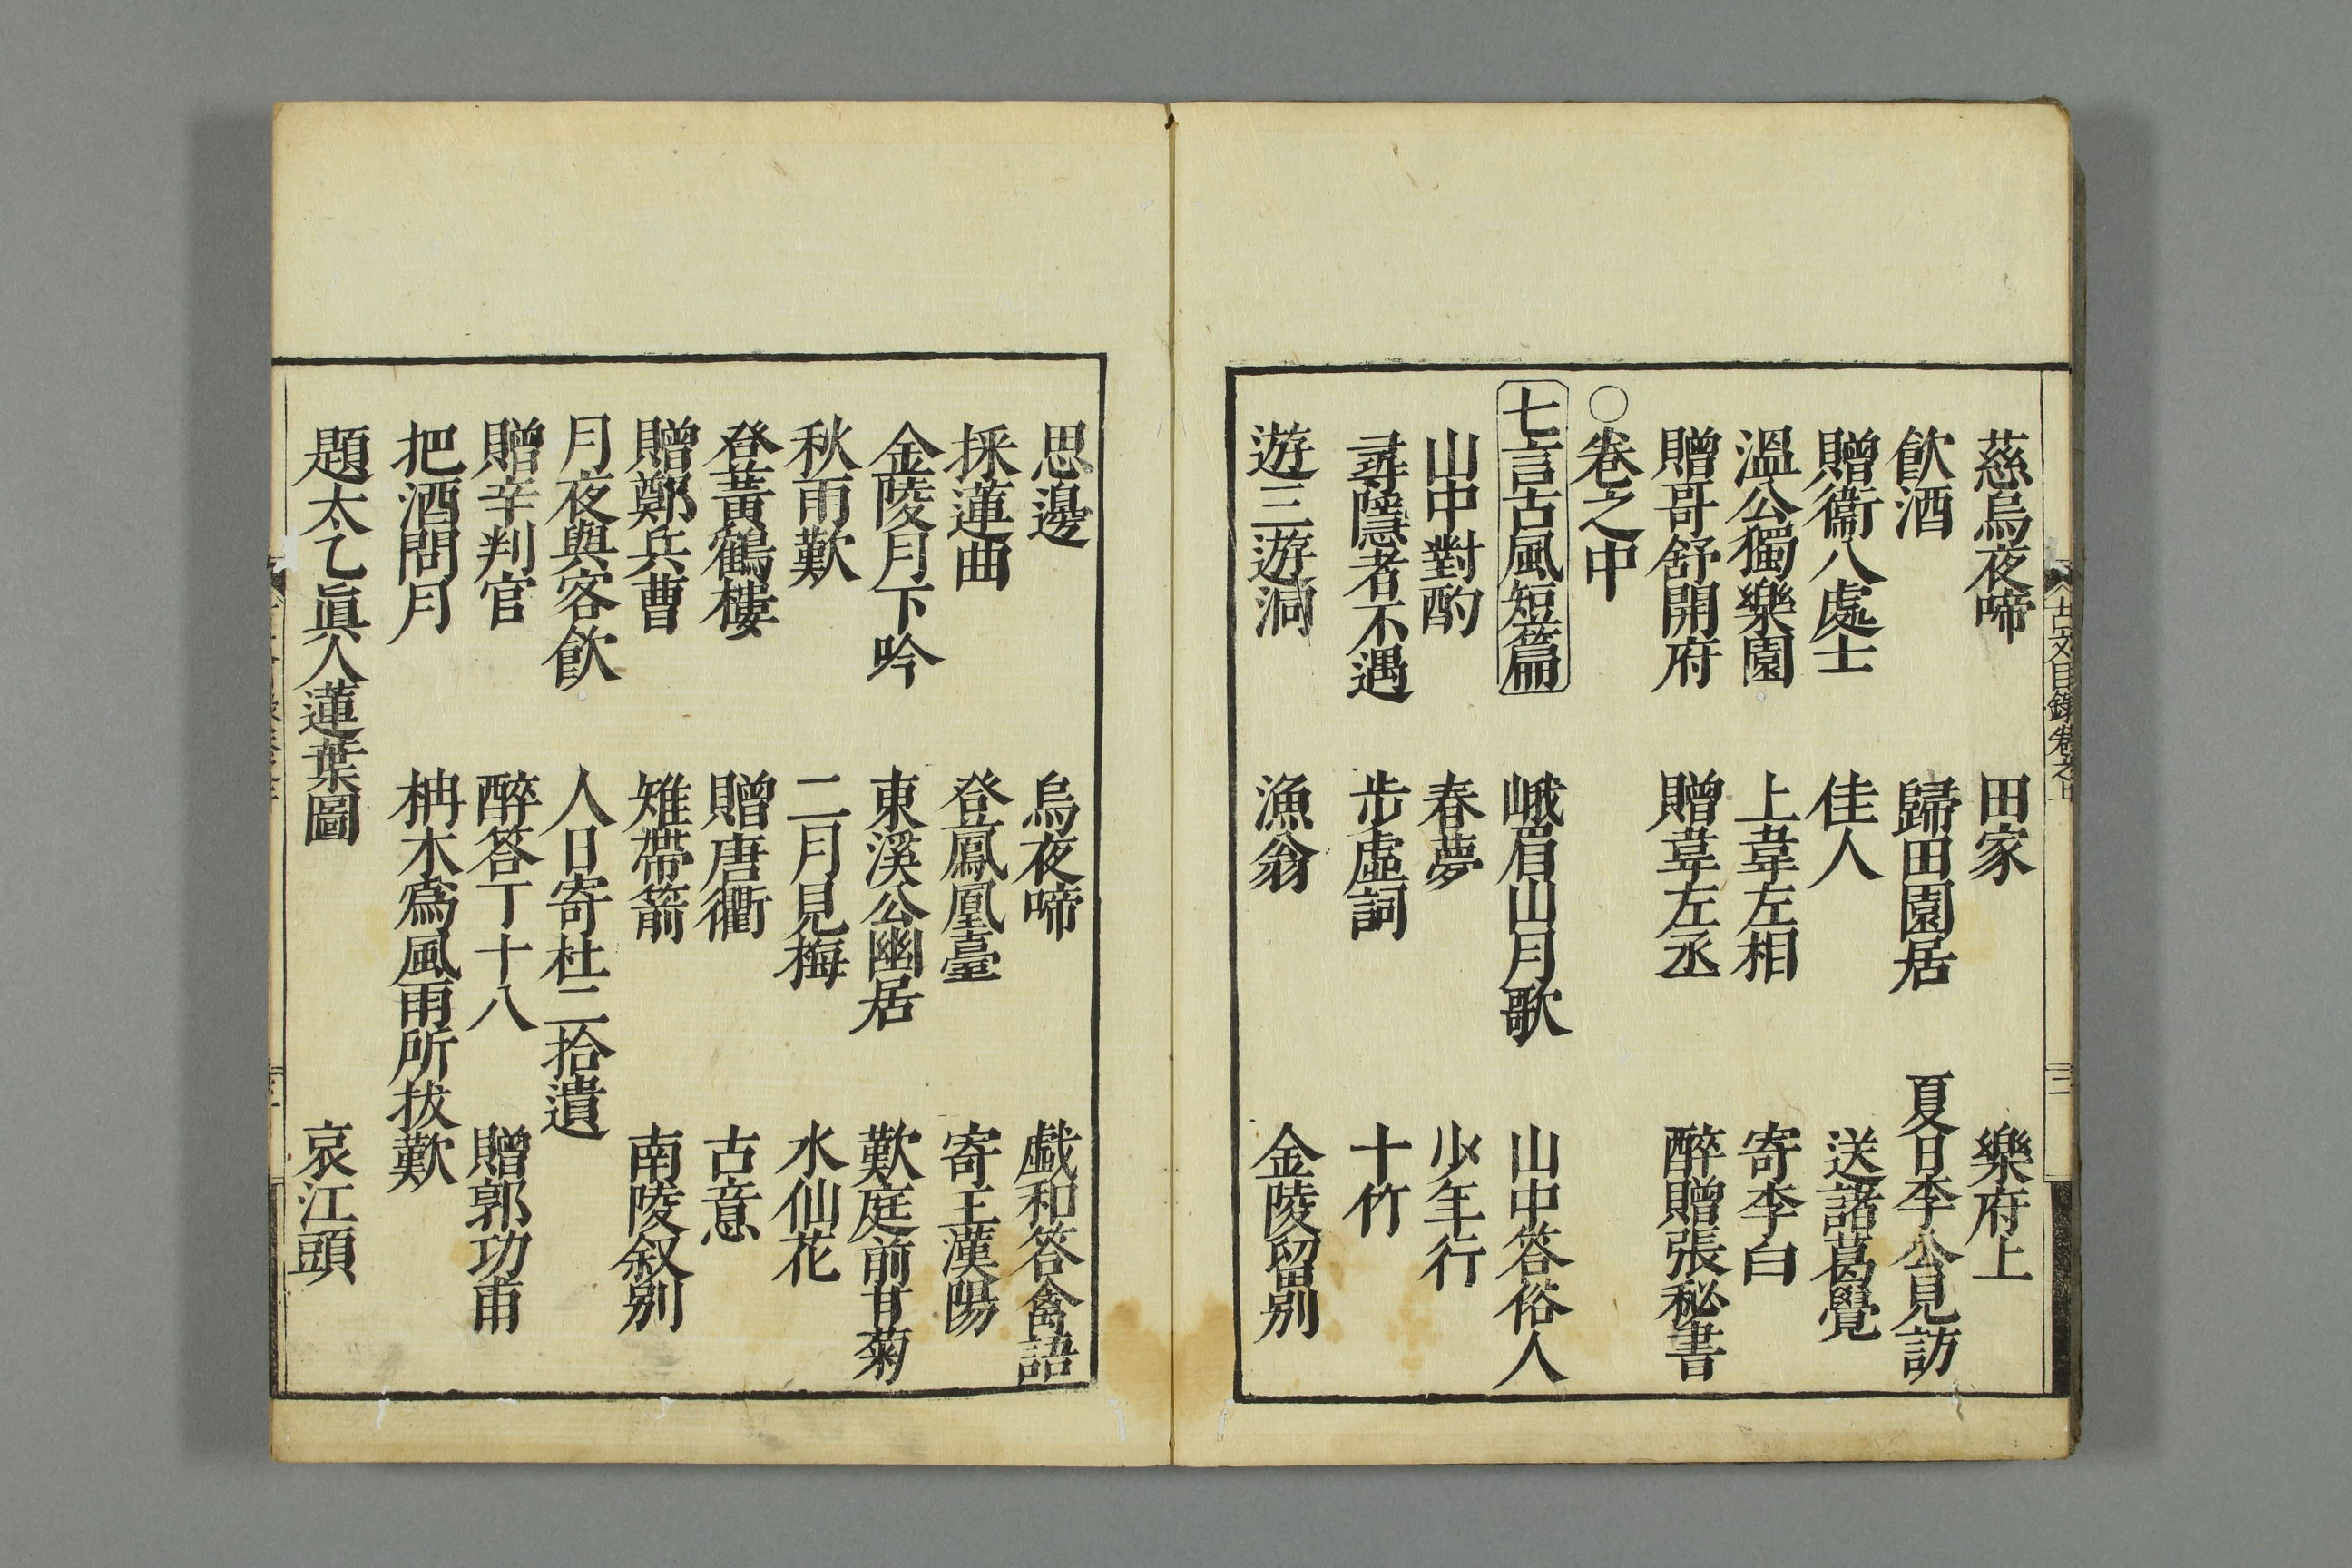 慈烏夜啼　田家　樂府上
飮酒　歸田園居　夏日李公見訪
贈衞八處士　佳人　送諸葛覺
溫公獨樂園　上韋左相　寄李白
贈哥舒開府　贈韋左丞　醉贈張秘書
○卷之中
七言古風短篇　峨眉山月歌　山中答俗人
山中對酌　春夢　少年行
尋隱者不遇　步虛詞　十竹
遊三遊洞　漁翁　金陵留別
思邊　烏夜啼　戯和答禽語
採蓮曲　登鳳凰臺　寄王漢陽
金陵月下吟　東溪公幽居　歎庭前甘菊
秋雨歎　二月見梅　水仙花
登黃鶴樓　贈唐衢　古意
贈鄭兵曹　雉帶箭　南陵叙別
月夜與客飮　人日寄杜二拾遺
贈辛判官　醉答丁十八　贈郭功甫
把酒問月　柟木爲風雨所拔歎
題太乙眞人蓮葉圖　哀江頭
古文目錄卷之
三